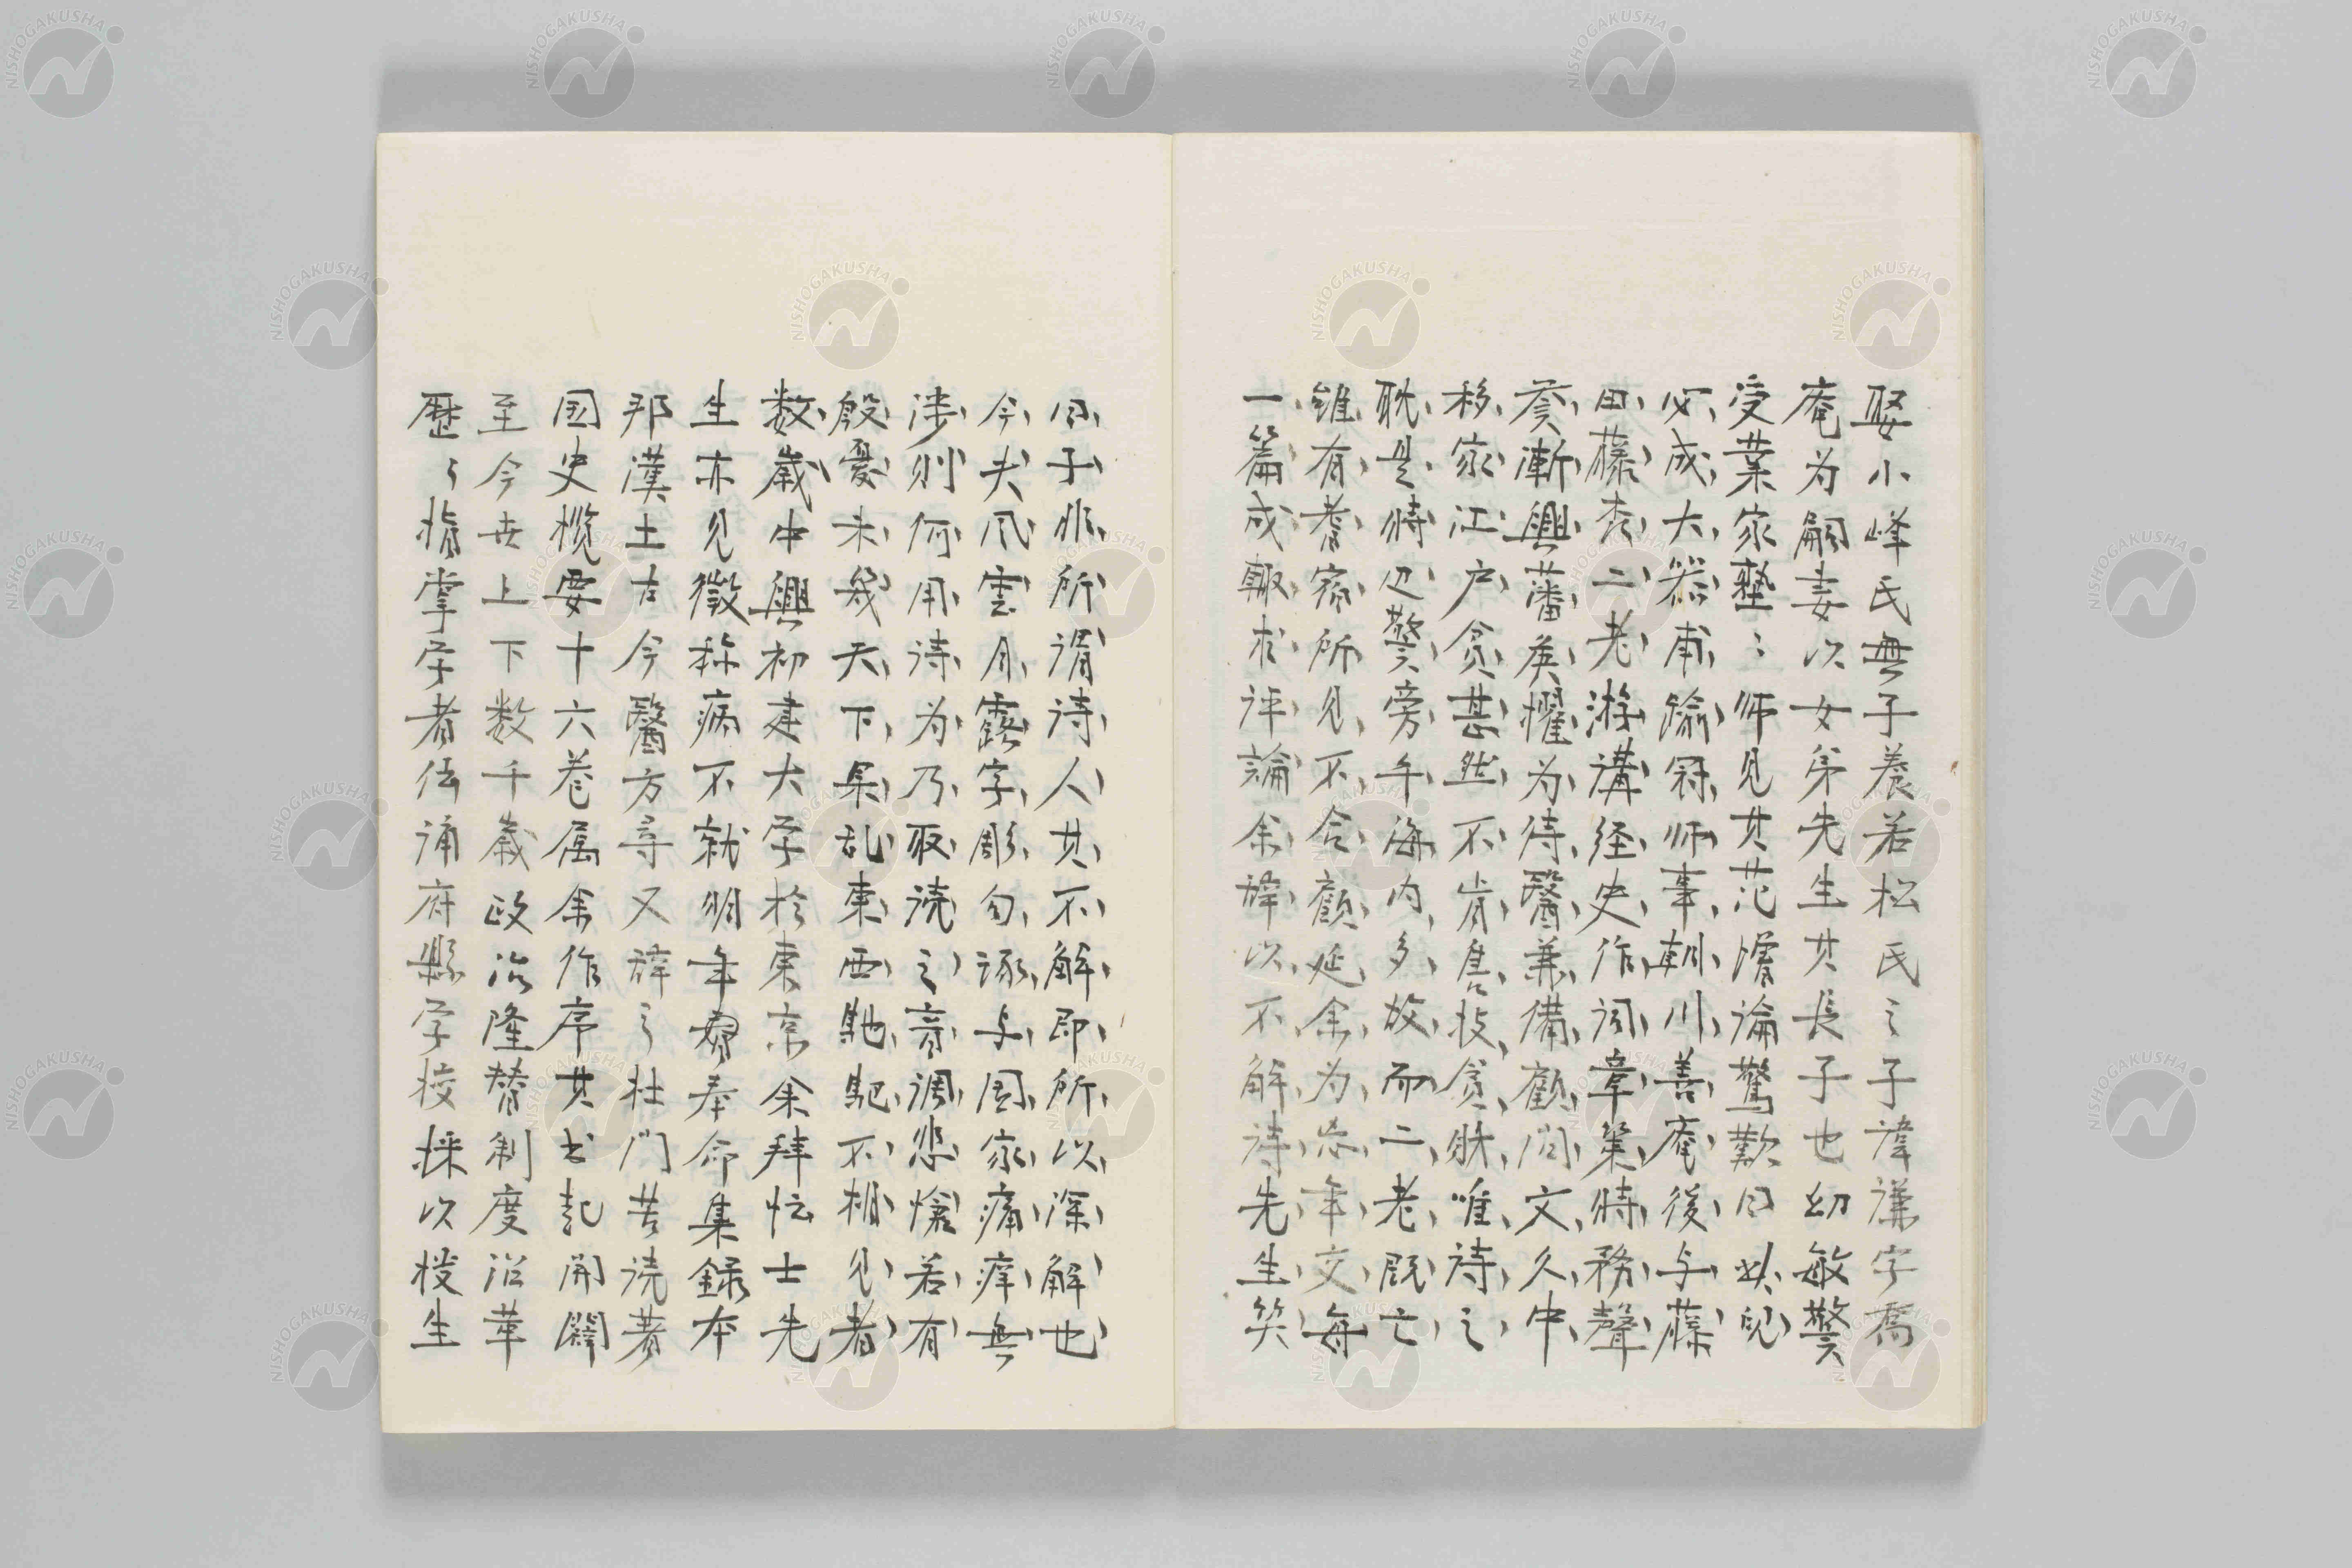 娶小峰氏無子養若松氏之子諱謙字喬
庵为嗣妻以女弟先生其長子也幼敏警
受業家塾〻师见其茫憺論驚歎曰此兒
必成大器甫踰冠师事朝川善庵後与藤
田藤森二老游講经史作词章策時務聲
誉漸興藩矦擢为侍醫兼備顧问文久中
移家江户贫甚然不肯售技贫財唯詩之
耽是時辺警旁午海内多故而二老既亡
雖有耆宿所见不合顧延余为忘年交每
一篇成輙求评論余辞以不解诗先生笑
曰子非所谓诗人其不解即所以深解也
今夫风雲月露字彫句琢与国家痛痒無
涉则何用诗为乃取读之音调悲愴若有
殷憂未幾天下果乱東西馳駆不相见者
数歳中興初建大学於東京余拜怯士先
生亦见徵称病不就明年冩奉命集録本
邦漢土古今醫方尋又辞之杜门苦读著
国史概要十六巻属余作序其书起開闢
至今世上下数千歳政治隆替制度沿革
歴〻指掌学者伝诵府縣学校採以授生
NISHOGAKUSHA